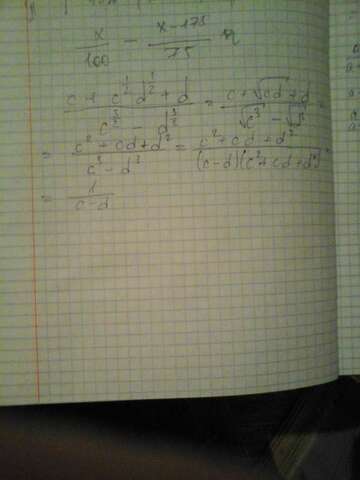 x/100 - (x-175)/75
(c + c^(1/2) d^(1/2) + d)/(c^(3/2) - d^(3/2)) = (c + √cd + d)/(√c^3 - √d^3) =
= (c^2 + cd + d^2)/(c^3 - d^3) = (c^2 + cd + d^2)/((c-d)(c^2 + cd + d^2)) =
= 1/(c-d)